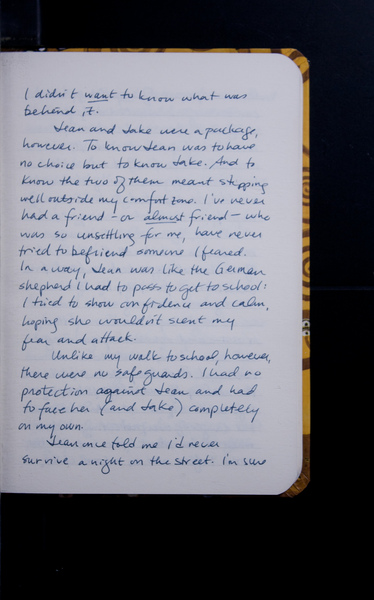 I didn't want to know what was
behind it.
Jean and Jake were a package,
however. To know Jean was to have
no choice but to know Jake. And to
know the two of them meant stepping
well outside my comfort zone. I've never
had a friend – or almost friend – who
was so unsettling for me, have never
tried to befriend someone I feared.
In a way, Jean was like the German
shepherd I had to pass to get to school:
I tried to show confidence and calm,
hoping she wouldn't scent my
fear and attack.
Unlike my walk to school, however,
there were no safeguards. I had no
protection against Jean and had
to face her (and Jake) completely
on my own.
Jean once told me I'd never
survive a night on the street. I'm sure